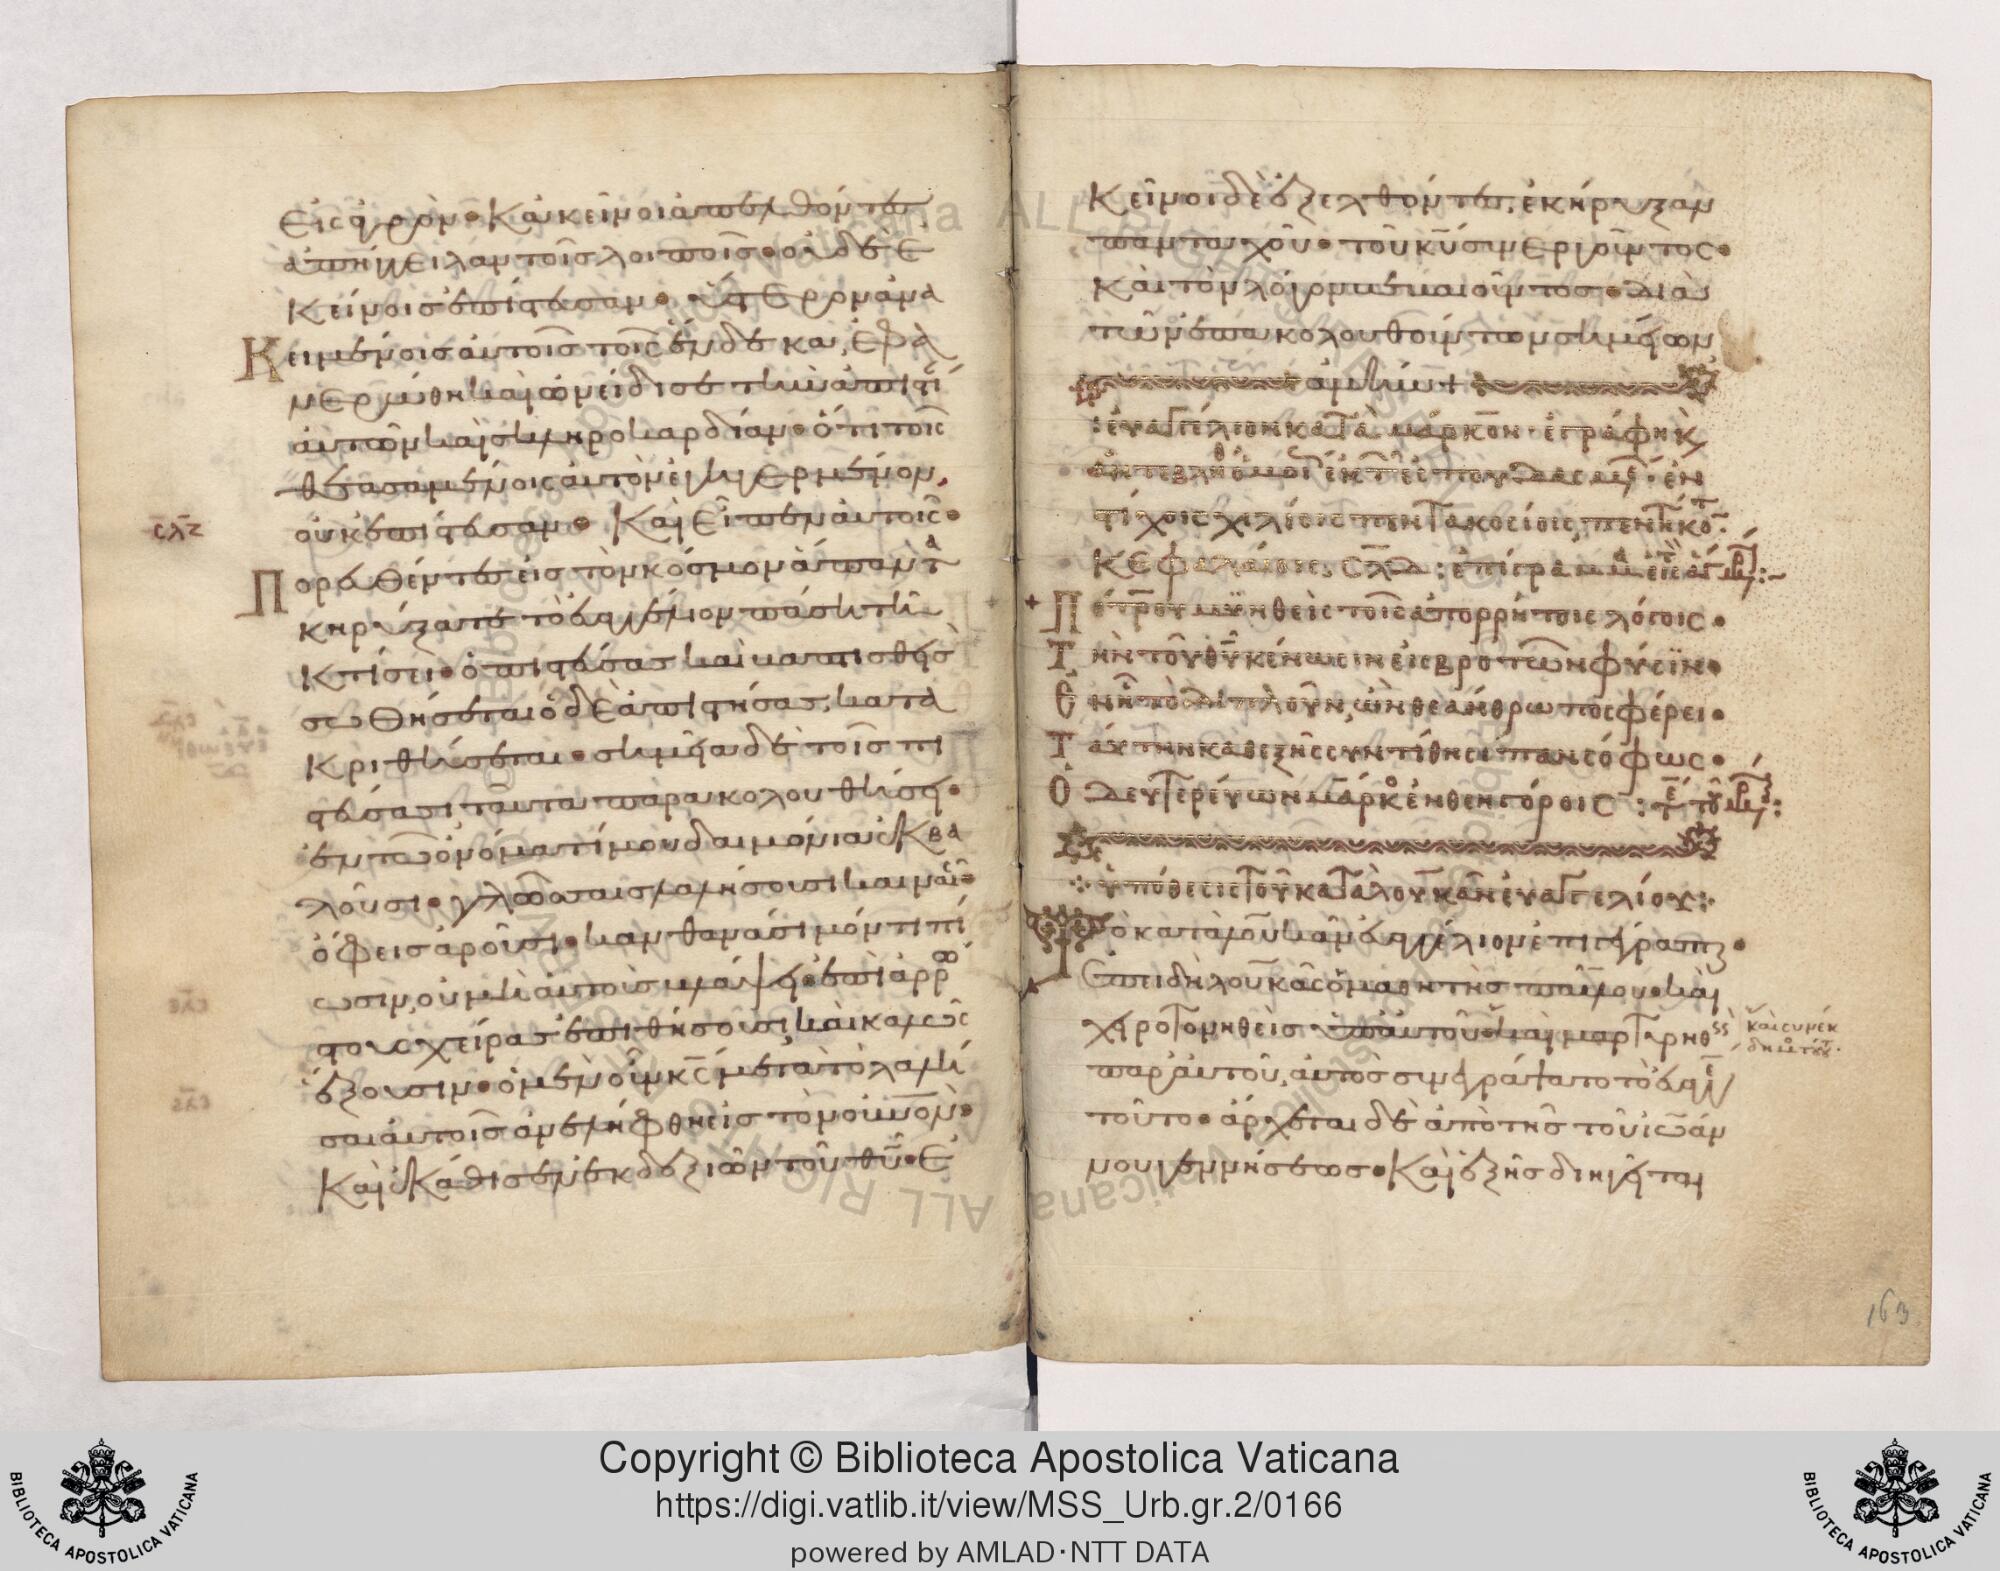 εἰς ἀγρόν· κἀκεῖνοι ἀπελθόντες
ἀπήγγειλαν τοῖς λοιποῖς· οὐδὲ ἐ
κείνοις ἐπίστευσαν· ὕστερον ἀνα
κειμένοις αὐτοῖς τοῖς ἕνδεκα, ἐφα
νερώθη καὶ ὠνείδισε τὴν ἀπιστί
αὐτῶν καὶ σκληροκαρδίαν· ὅτι τοῖς
θεασαμένοις αὐτὸν ἐγηγερμένον,
σλζ
οὐκ ἐπίστευσαν· Καὶ εἶπεν αὐτοῖς·
Πορευθέντες εἰς τὸν κόσμον ἅπαντα
κηρύξατε τὸ εὐαγγέλιον πάσῃ τῇ
κτίσει· ὁ πιστεύσας καὶ βαπτισθεὶς
σωθήσεται ὁ δὲ ἀπιστήσας, κατα
κριθήσεται· σημεῖα δὲ τοῖς πι
στεύσασι ταῦτα παρακολουθήσει·
ἐν τῷ ὀνόματί μου δαιμόνια ἐκβα
λοῦσι· γλώσσαις λαλήσουσι καιναῖς·
ὄφεις ἀροῦσι· κἂν θανάσιμόν τι πί
ωσιν, οὐ μὴ αὐτοὺς βλάψει· ἐπὶ ἀρρώ
στους χεῖρας ἐπιθήσουσι, καὶ καλῶς
ἕξουσιν· ὁ μὲν οὖν κς μετὰ τὸ λαλῆ
σαι αὐτοῖς ἀνελήφθη εἰς τὸν οὐνον·
καὶ ἐκάθισεν ἐκ δεξιῶν τοῦ θυ· ἐ
κεῖνοι δὲ ἐξελθόντες, ἐκήρυξαν
πανταχοῦ· τοῦ κυ συνεργοῦντος·
καὶ τὸν λόγον βεβαιοῦντος· διὰ
τῶν ἐπακολουθούντων σημείων
ἀμήν
εὐαγγέλιον κατὰ μάρκον· ἐγράφη κ
ἀντεβλήθη ὁμοί ἐκ τῶν ἐσπουδασμέ· ἐν
στίχοις χιλίοις πεντακοσίοις, πεντήκοντ
κεφαλαίοις, σλδ: ἐπίγραμμα
Πέτρου μυηθεὶς τοῖς ἀπορρήτοις λόγοις·
Τὴν τοῦ θυ κένωσιν εἰς βροτῶν φύσιν·
Ἐν ᾗ τὸ διπλοῦν, ὡς θεάνθρωπος φέρει·
Ταύτην καθεξῆς συντίθησι πανσόφως·
Ὁ δευτερεύων μάρκος ἐν θεηγόροις:
ὑπόθεσις τοῦ κατὰ λουκᾶν εὐαγγελίου:
Τὸ κατὰ λουκᾶν εὐαγγέλιον ἐπιγέγραπτ·
ἐπειδὴ λουκᾶς ὁ μαθητὴς παύλου· καὶ
χειροτονηθεὶς ὑπ' αὐτοῦ· καὶ μαρτυρηθεὶς
καὶ συνέκ
δημος
παρ' αὐτοῦ, αὐτὸς συνεγράψατο τὸ εὐαγγ
τοῦτο· ἄρχεται δὲ ἀπὸ τῆς τοῦ ἰωάν
νου γεννήσεως· Καὶ ἑξῆς διηγεῖται
163
Copyright © Biblioteca Apostolica Vaticana
https://digi.vatlib.it/view/MSS_Urb.gr.2/0166
powered by AMLAD·NTT DATA
BIBLIOTECA APOSTOLICA VATICANA
BIBLIOTECA APOSTOLICA VATICANA